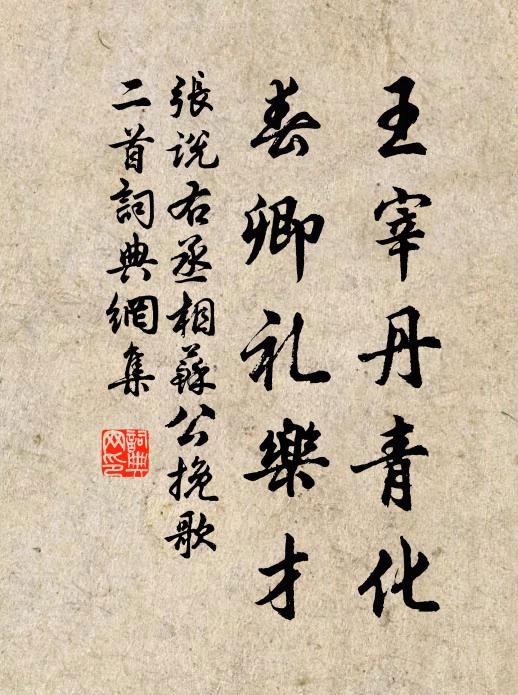 王宰丹青化
春卿礼樂才
張説右丞相蘇公挽歌
二首詞典網集
詞典
网印